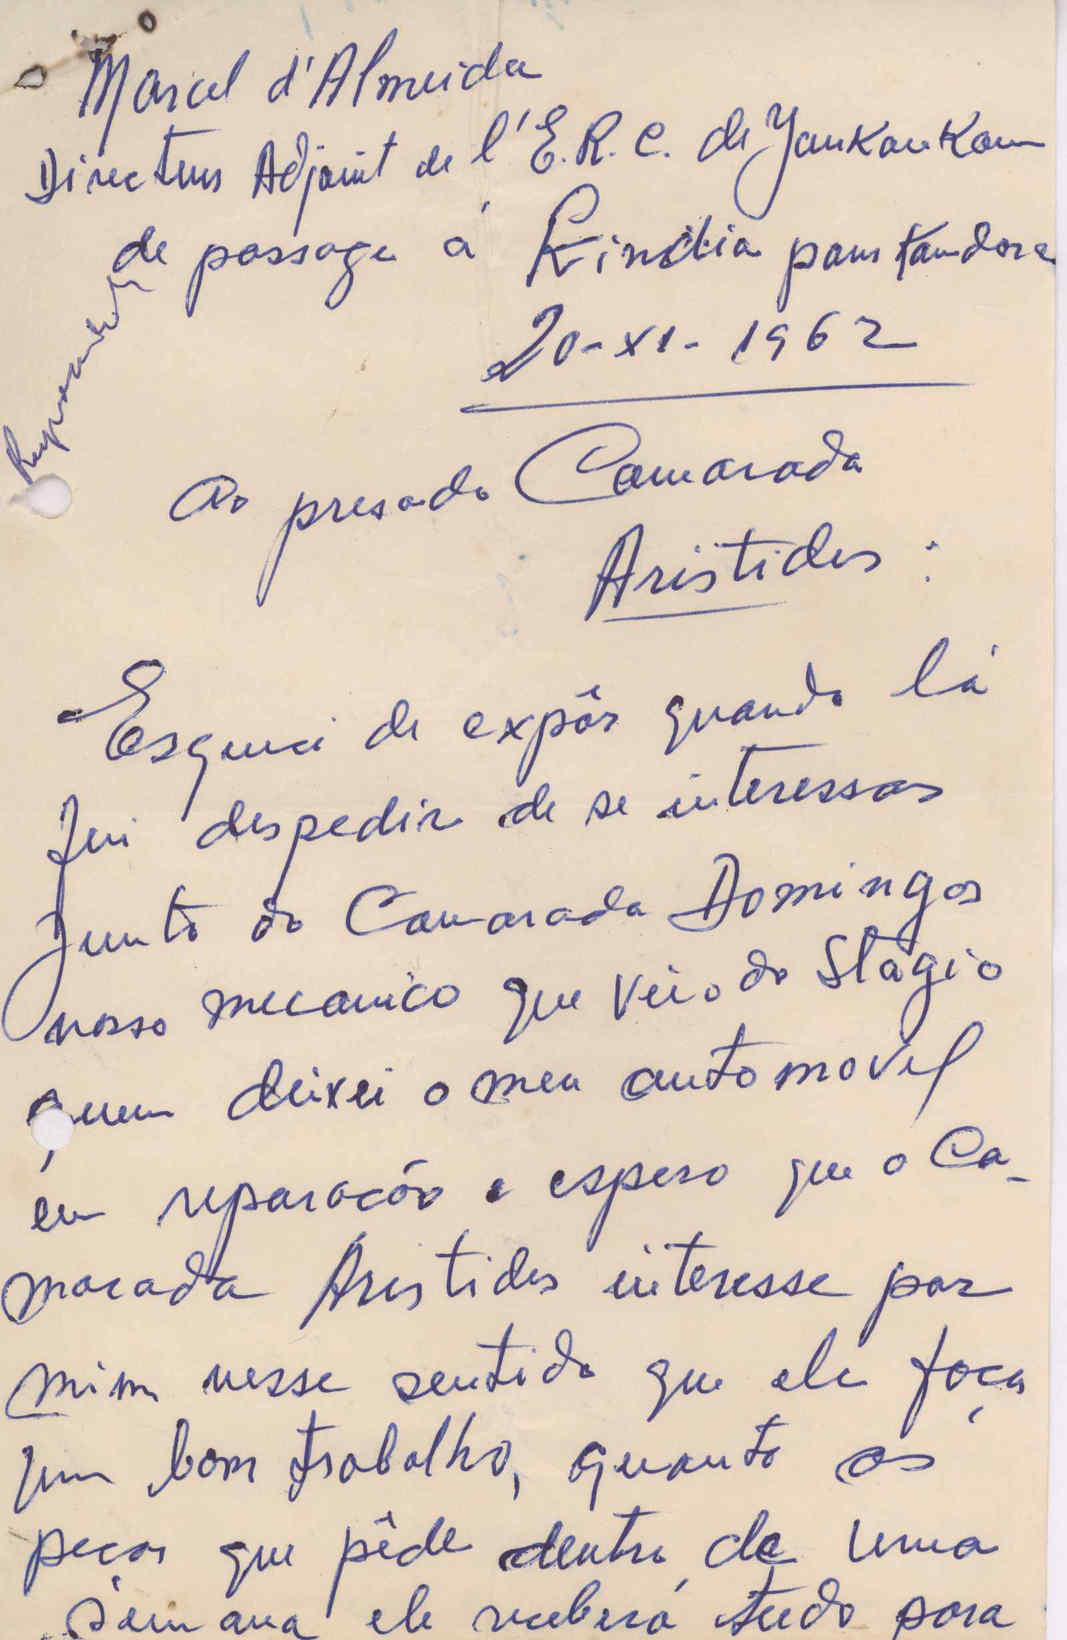 Marcel d'Almeida
Directeur Adjoint de l'E.R.C. de Yankankan
de passage à Kindia pour Kandara
20-XI-1962
Respondido
Ao presado Camarada
Aristides :
Esqueci de expôr quando lá
fui despedir de se interessar
junto do Camarada Domingos
nosso mecanico que veio do Stágio
quem deixei o meu automovel
em reparação e espero que o Ca-
marada Aristides interesse por
mim nesse sentido que ele faça
um bom trabalho, quanto ás
peças que pêde dentro de uma
semana ele receberá tudo para